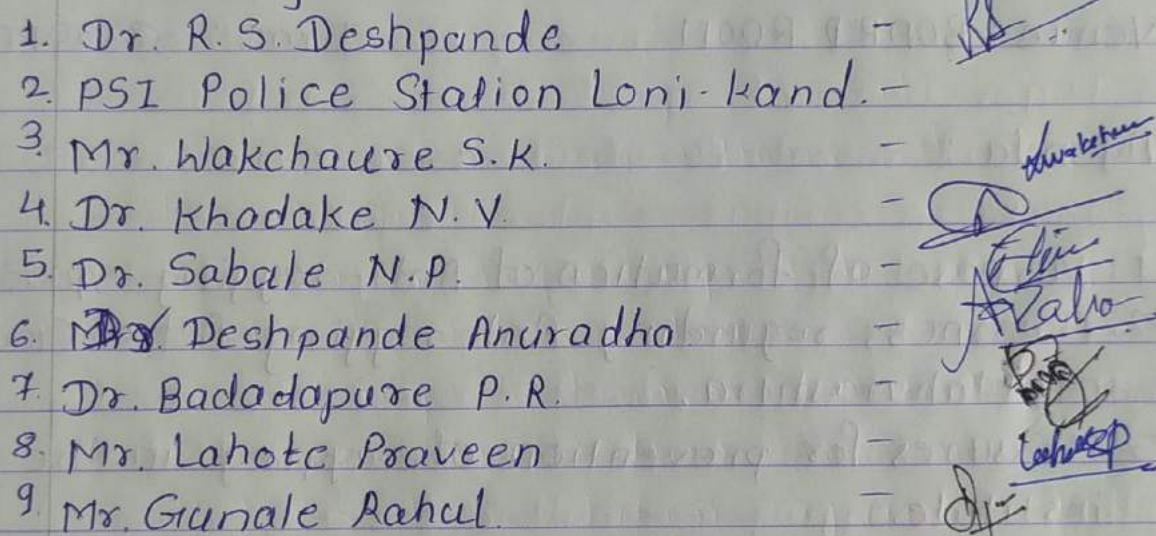 1. Dr. R. S. Deshpande -
2. PSI Police Station Loni-kand. -
3. Mr. Wakchaure S.K. -
4. Dr. Khodake N. V. -
5. Dr. Sabale N.P. -
6. Deshpande Anuradha -
7. Dr. Badadapure P. R. -
8. Mr. Lahote Praveen -
9. Mr. Gunale Rahul -